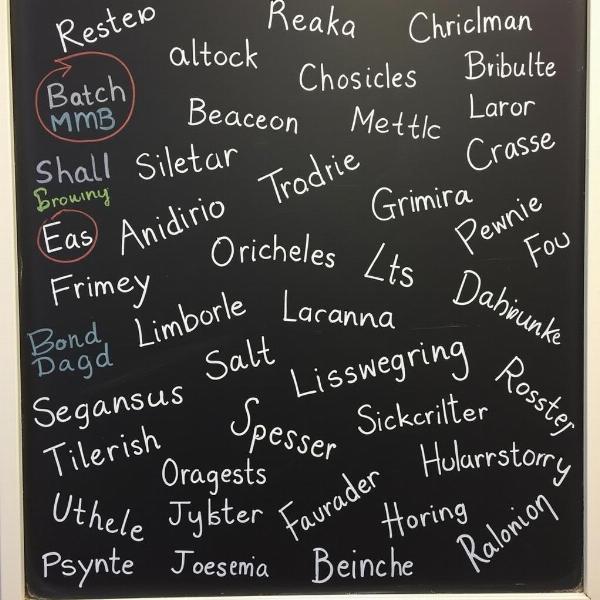 Rester
Reaka
Chriclman
altock
Chosicles
Bribulte
Batch
MMB
Beaceon
Mettlc
Laror
Shall
Siletar
Trodrie
Crasse
Browiny
Grimira
Eas
Anidirio
Pewnie
Oricheles
Lts
Fou
Frimey
Limborle
Lacanna
Bond
Dagd
Salt
Lisswegring
Rosster
Segansus
Spesser
Sickcrilter
Tilerish
Oragests
Hularrstorry
Uthele
Faurader
Horing
Ralonion
Psynte
Joesemia
Beinche